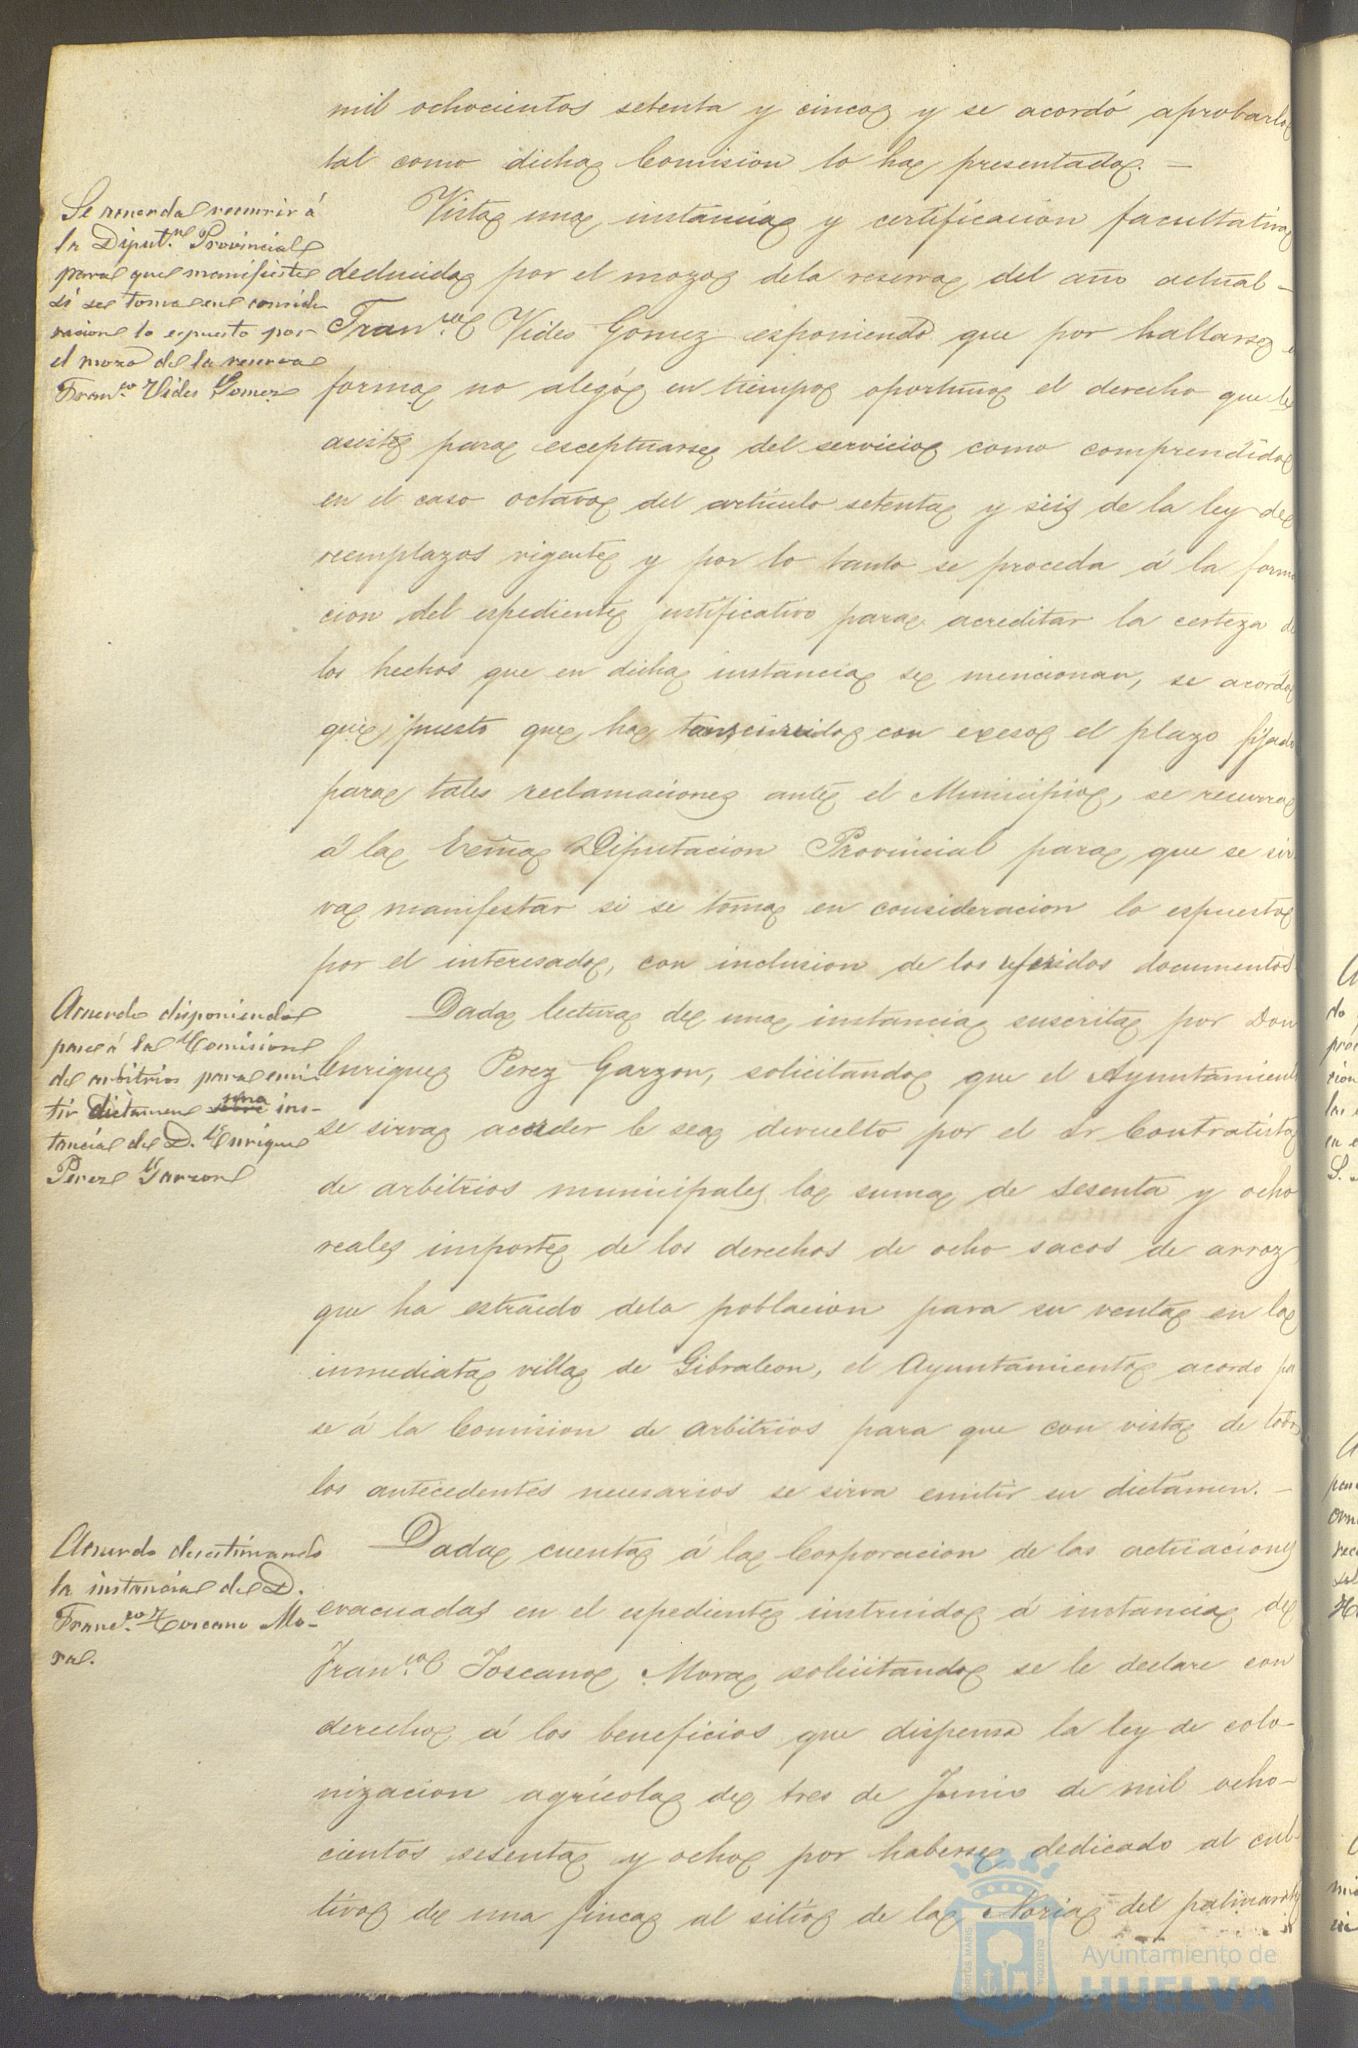 mil ochocientos setenta y cinco y se acordó aprobarlo
tal como dicha Comision lo ha presentado. —
Se acuerda recurrir á
la Diput.n Provincial
para que manifieste
si se toma en conside
racion lo espuesto por
el mozo de la reserva
Fran.co Vides Gomez
Vista una instancia y certificacion facultativa
deducida por el mozo dela reserva del año actual –
Fran.co Vides Gomez esponiendo que por hallarse
forma no alegó en tiempo oportuno el derecho que le
asiste para esceptuarse del servicio como comprendido
en el caso octavo del artículo setenta y seis de la ley de
reemplazos vigente y por lo tanto se proceda á la forma
cion del espediente justificativo para acreditar la certeza de
los hechos que en dicha instancia se mencionan, se acordó
que puesto que ha transcurrido con exeso el plazo fijado
para tales reclamaciones ante el Municipio, se recurra
á la Exma Diputacion Provincial para que se sir
va manifestar si se toma en consideracion lo espuesto
por el interesado, con inclusion de los referidos documentos.
Acuerdo disponiendo
pase á la Comision
de arbitrios para emi-
tir dictamen una ins-
tancia de D. Enrique
Perez Garzon
Dada lectura de una instancia suscrita por Don
Enrique Perez Garzon, solicitando que el Ayuntamiento
se sirva acceder le sea devuelto por el Sr Contratista
de arbitrios municipales la suma de sesenta y ocho
reales importe de los derechos de ocho sacos de arroz
que ha estraido dela poblacion para su venta en la
inmediata villa de Gibraleon, el Ayuntamiento acordo pa
se á la Comision de arbitrios para que con vista de todos
los antecedentes necesarios se sirva emitir su dictamen. —
Acuerdo desestimando
la instancia de D.
Franc.co Toscano Mo-
ra.
Dada cuenta á la Corporacion de las actuaciones
evacuadas en el espediente instruido á instancia de
Fran.co Toscano Mora solicitando se le declare con
derecho á los beneficios que dispensa la ley de colo-
nizacion agrícola de tres de Junio de mil ocho-
cientos sesenta y ocho por haberse dedicado al cul-
tivo de una finca al sitio de la Noria del
Ayuntamiento de
HUELVA